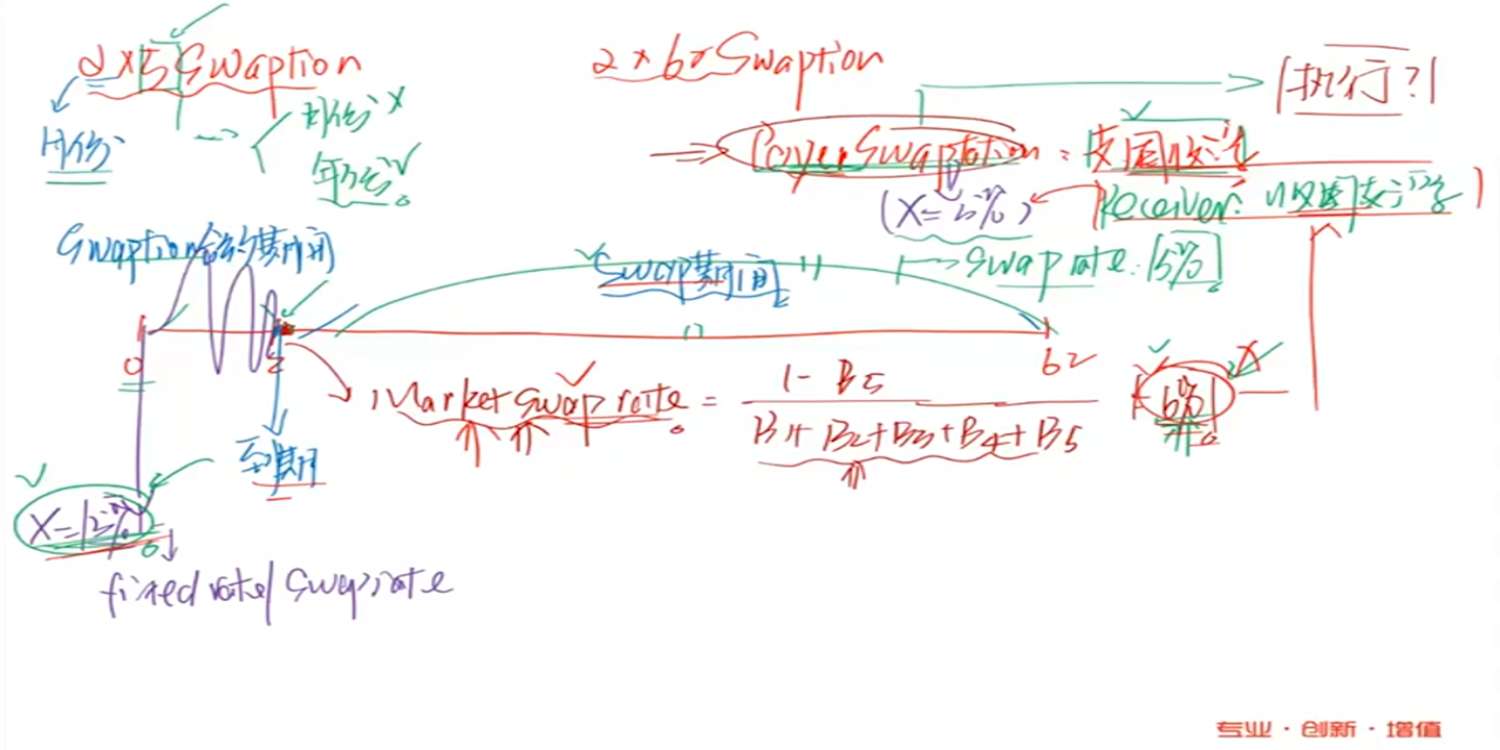 2×5 Swaption
月份
月份 ×
年份 √
2×62 Swaption
执行?
Payer Swaption: 支固收浮
(X=5%)
Receiver: 收固支浮
Swaption合约期间
Swap期间
Swap rate: 5%
0
2
62
Market Swap rate = 1-B5 / B1+B2+B3+B4+B5
6%
到期
X=5%
fixed rate/Swap rate
专业·创新·增值